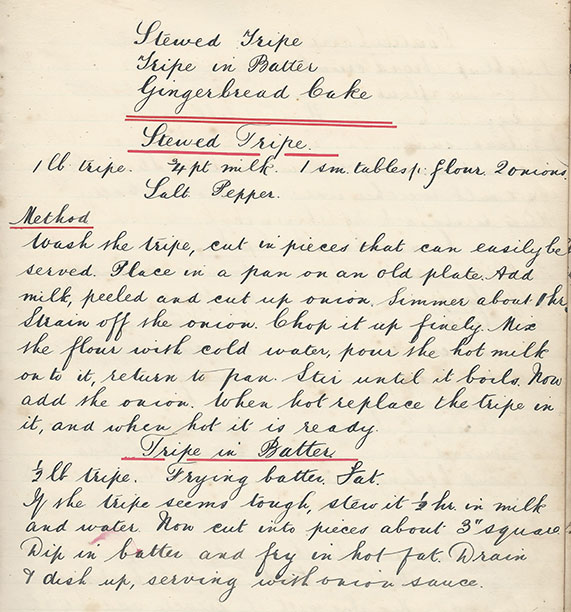 Stewed Tripe
Tripe in Batter
Gingerbread Cake
Stewed Tripe.
1 lb tripe. ¾ pt milk. 1 sm. tablesp. flour. 2 onions.
Salt. Pepper.
Method
Wash the tripe, cut in pieces that can easily be
served. Place in a pan on an old plate. Add
milk, peeled and cut up onion. Simmer about 1 hr.
Strain off the onion. Chop it up finely. Mix
the flour with cold water, pour the hot milk
on to it, return to pan. Stir until it boils. Now
add the onion. When hot replace the tripe in
it, and when hot it is ready.
Tripe in Batter.
½ lb tripe. Frying batter. Fat.
If the tripe seems tough, stew it ½ hr. in milk
and water. Now cut into pieces about 3" square.
Dip in batter and fry in hot fat. Drain
& dish up, serving with onion sauce.